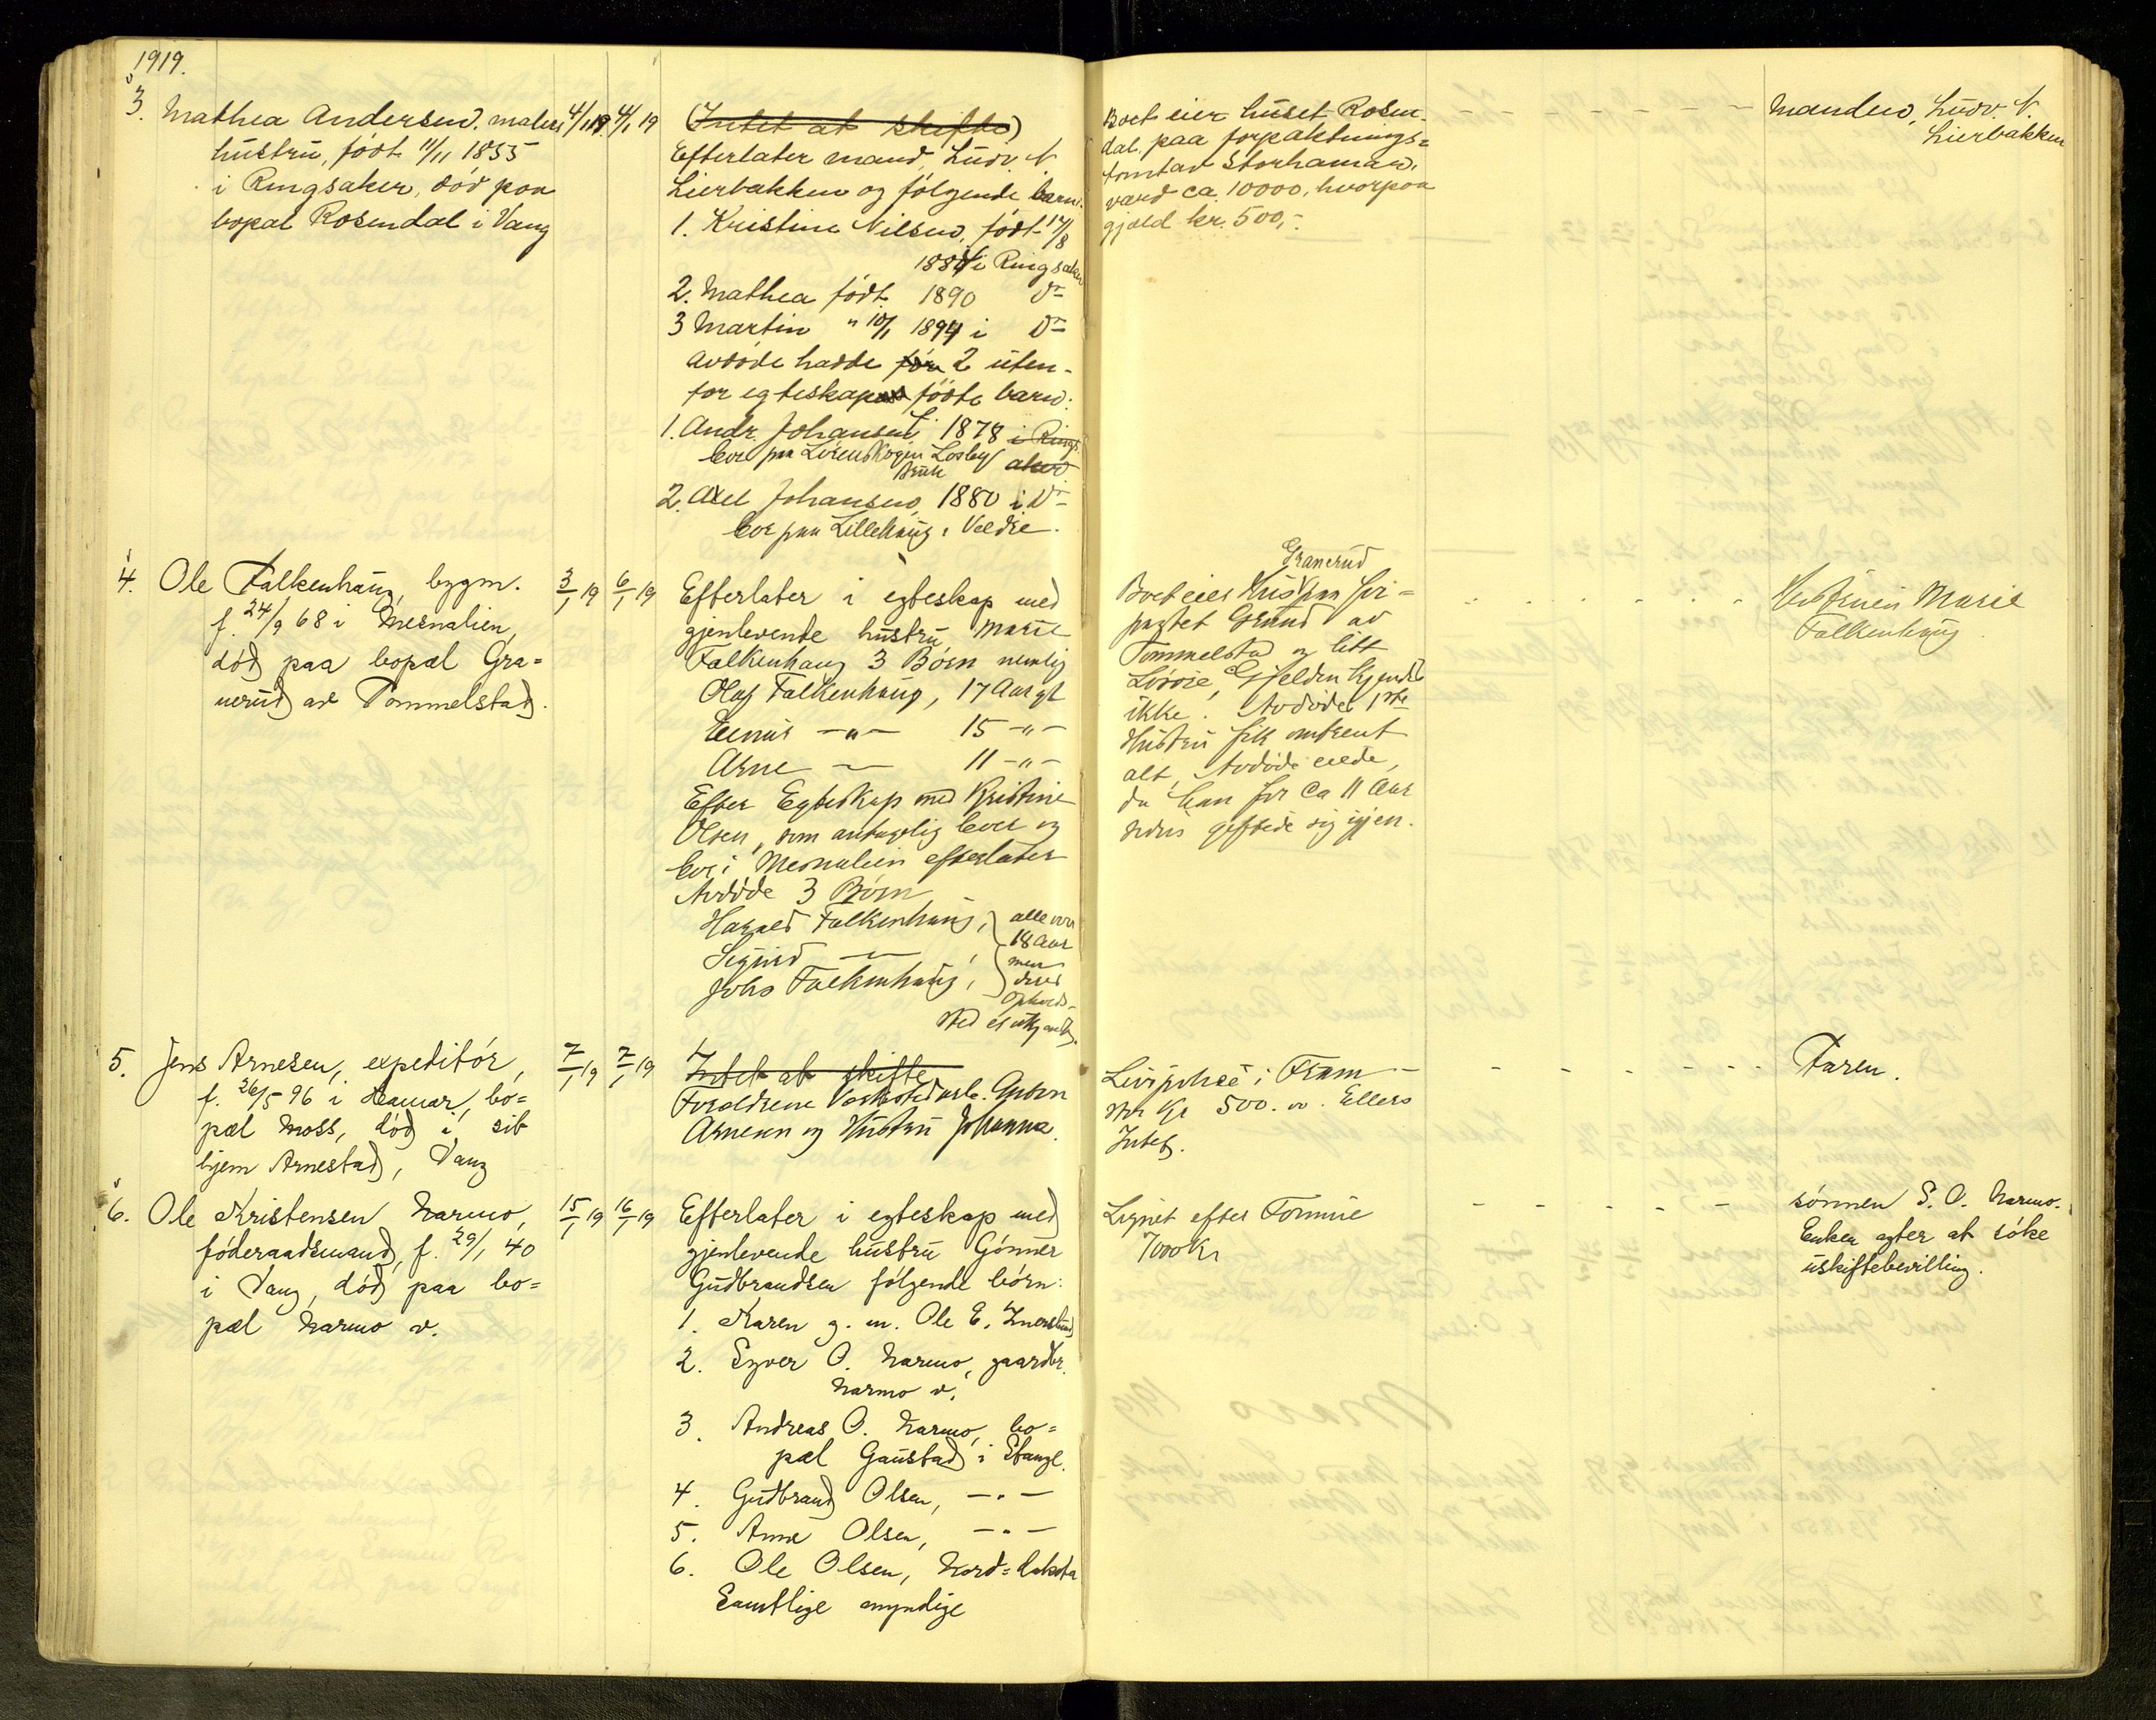 1919.
3. Mathea Andersen, malers 4/1 19 4/1 19
hustru, født 11/11 1855
i Ringsaker, död paa
bopæl Rosendal i Vang
(Intet at skifte)
Efterlater mand, Ludv. N.
Lierbakken og følgende barn:
1. Kristine Nilsen, født 17/8
1884 i Ringsaker
2. Mathea født 1890 do
3 Martin " 10/1 1894 i do
Avdöde hadde før 2 uten-
for egteskap födte barn:
1. Andr. Johansen f. 1878 i Rings-
aker
bor paa Lörenskogen Losby
Bruk
2. Axel Johansen, 1880 i do
bor paa Lillehaug i Veldre.
Boet eier huset Rosen-
dal paa forpaktnings=
tomt av Storhamar,
værd ca. 10000, hvorpaa
gjæld kr. 500,-
Manden, Ludv. N.
Lierbakken
4. Ole Falkenhaug, bygm. 3/1 19 6/1 19
f. 24/9 68 i Mesnalien,
död paa bopæl Gra=
nerud av Tommelstad.
Efterlater i egteskap med
gjenlevende hustru Marie
Falkenhaug 3 Börn nemlig
Olaf Falkenhaug, 17 Aar gl
—"— 15 —"—
Arne — 11 —"—
Efter Egteskap med Kristine
Olsen, som antagelig lever og
bor i Mesnalien efterlater
Avdöde 3 Börn
Harald Falkenhaug, } alle over
18 Aar
Sigurd — men
Johs Falkenhaug, deres
Opholds-
sted er ukjendt.
Granerud
Boet eier Hus paa for=
pagtet Grund av
Tommelstad og litt
Lösöre, Gjelden kjendes
ikke. Avdödes 1ste
Hustru fik omtrent
alt, Avdöde eiede,
da han for ca 11 Aar
siden giftede sig igjen.
Hustruen Marie
Falkenhaug
5. Jens Arnesen, expeditör, 7/1 19 7/1 19
f. 26/5 96 i Hamar, bo=
pæl Moss, död i sit
hjem Arnestad, Vang
Intet at skifte
Forældrene Anton
Arnesen og Hustru Johanna.
Livspolice i Fram
stor Kr 500.00. Ellers
Intet.
Faren.
6. Ole Kristensen Narmo, 15/1 19 16/1 19
föderaadsmand, f. 29/1 40
i Vang, död paa bo=
pæl Narmo v.
Efterlater i egteskap med
gjenlevende hustru Gönner
Gudbrandsen fölgende börn:
1. Karen g. m. Ole E. Imerslund
2. Syver O. Narmo, gaardbr.
Narmo v.
3. Andreas O. Narmo, bo=
pæl Gaustad i Stange.
4. Gudbrand Olsen, —"—
5. Anne Olsen, —"—
6. Ole Olsen, Nord=Dakota
Samtlige myndige
Lignet efter Formue
7000 Kr
sønnen S. O. Narmo.
Enken agter at söke
uskiftebevilling.